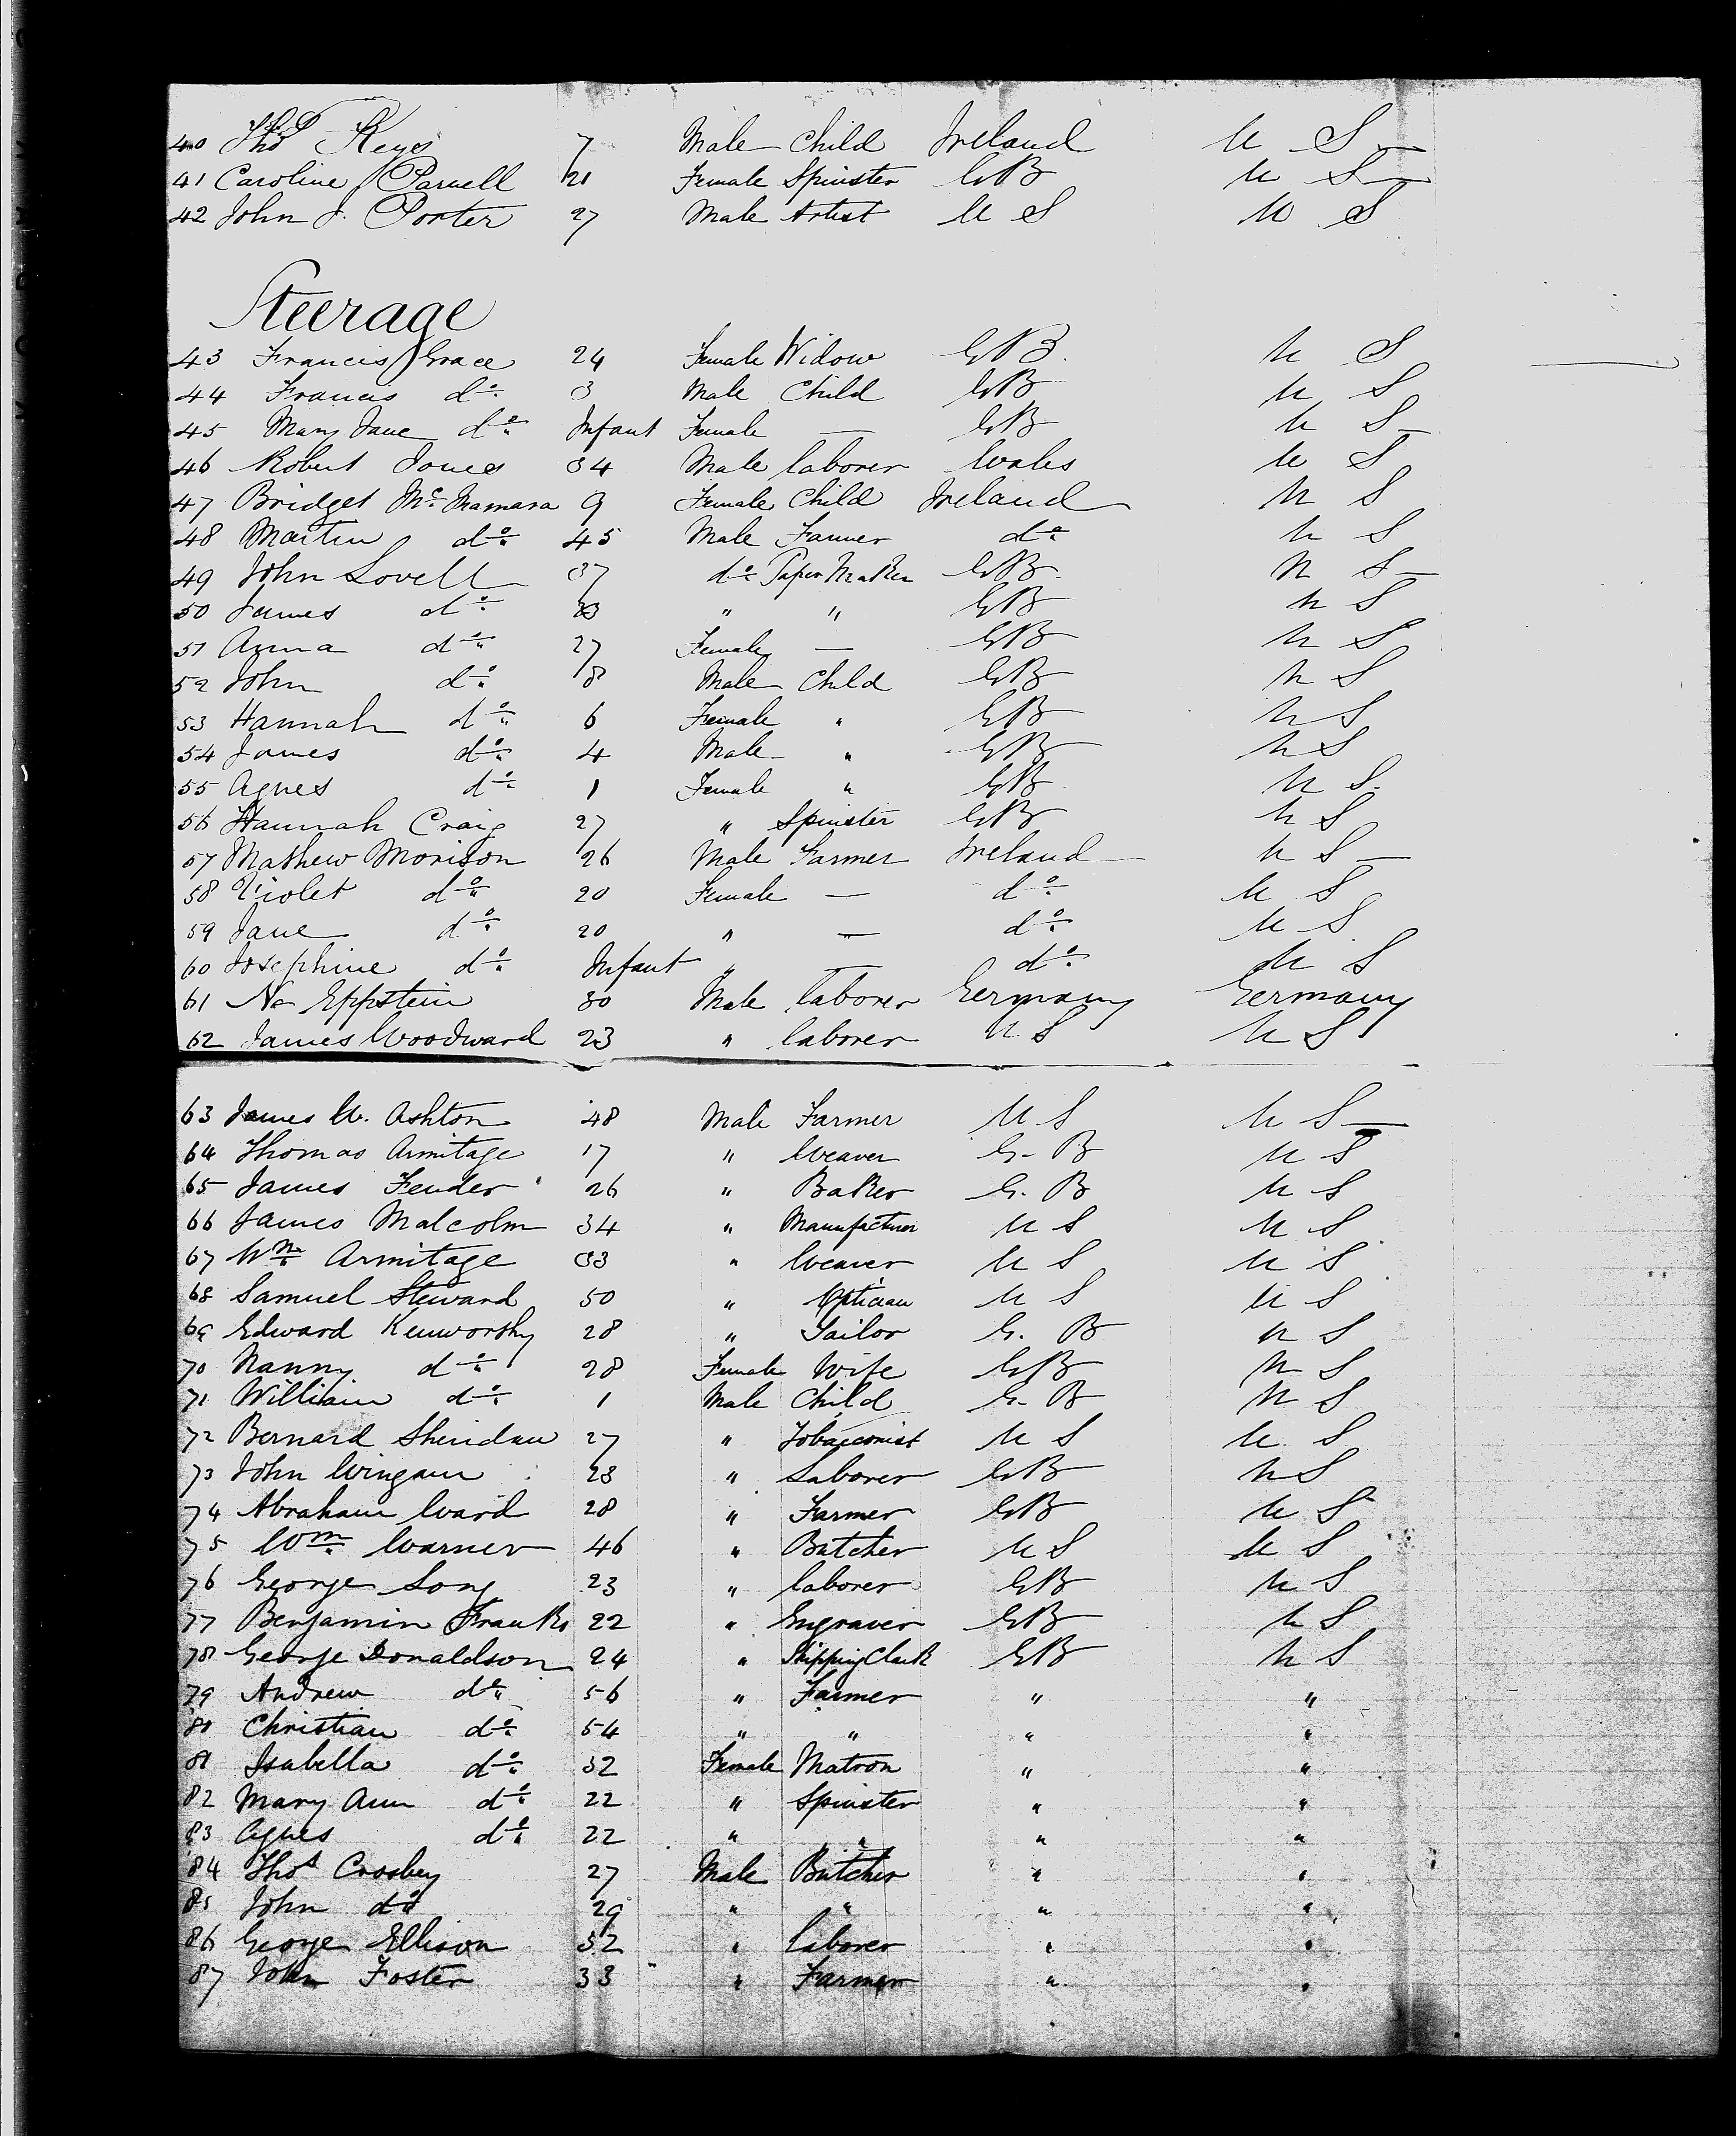 40 Thos Keys 7 Male Child Ireland U S
41 Caroline Parnell 21 Female Spinster G B U S
42 John J. Porter 27 Male Artist U S U S
Steerage
43 Francis Grace 24 Female Widow G B. U S
44 Francis do 3 Male Child G B U S
45 Mary Jane do Infant Female — G B U S
46 Robert Jones 34 Male laborer Wales U S
47 Bridget McNamara 9 Female Child Ireland U S
48 Martin do 45 Male Farmer do U S
49 John Lovell 37 do Paper Maker G B U S
50 James do " " G B U S
51 Anna do 27 Female — G B U S
52 John do 8 Male Child G B U S
53 Hannah do 6 Female " G B U S
54 James do 4 Male " G B U S
55 Agnes do 1 Female " G B U S.
56 Hannah Craig 27 " Spinster G B U S
57 Mathew Morison 26 Male Farmer Ireland U S
58 Violet do 20 Female — do U S
59 Jane do 20 " — do U S
60 Josephine do Infant " — do U S
61 Eppstein 30 Male laborer Germany Germany
62 James Woodward 23 " laborer U S U S
63 James W. Ashton 48 Male Farmer U S U S
64 Thomas Armitage 17 " Weaver G. B U S
65 James Fender 26 " Baker G. B U S
66 James Malcolm 34 " Manufacturer U S U S
67 Wm Armitage 33 " Weaver U S U S
68 Samuel Steward 50 " Optician U S U S
69 Edward Kenworthy 28 " Tailor G. B U S
70 Nanny do 28 Female Wife G B U S
71 William do 1 Male Child G. B U S
72 Bernard Sheridan 27 " Tobacconist U S U S
73 John Wingam 23 " Laborer G B U S
74 Abraham Ward 28 " Farmer G B U S
75 Wm Warner 46 " Butcher U S U S
76 George Long 23 " laborer G B U S
77 Benjamin Franks 22 " Engraver G B U S
78 George Donaldson 24 " Shipping Clerk G B U S
79 Andrew do 56 " Farmer " "
80 Christian do 54 " " " "
81 Isabella do 32 Female Matron " "
82 Mary Ann do 22 " Spinster " "
83 Agnes do 22 " " " "
84 Thos Crosbey 27 Male Butcher " "
85 John do 29 " " " "
86 George Ellison 52 " laborer " "
87 John Foster 33 " Farmer " "